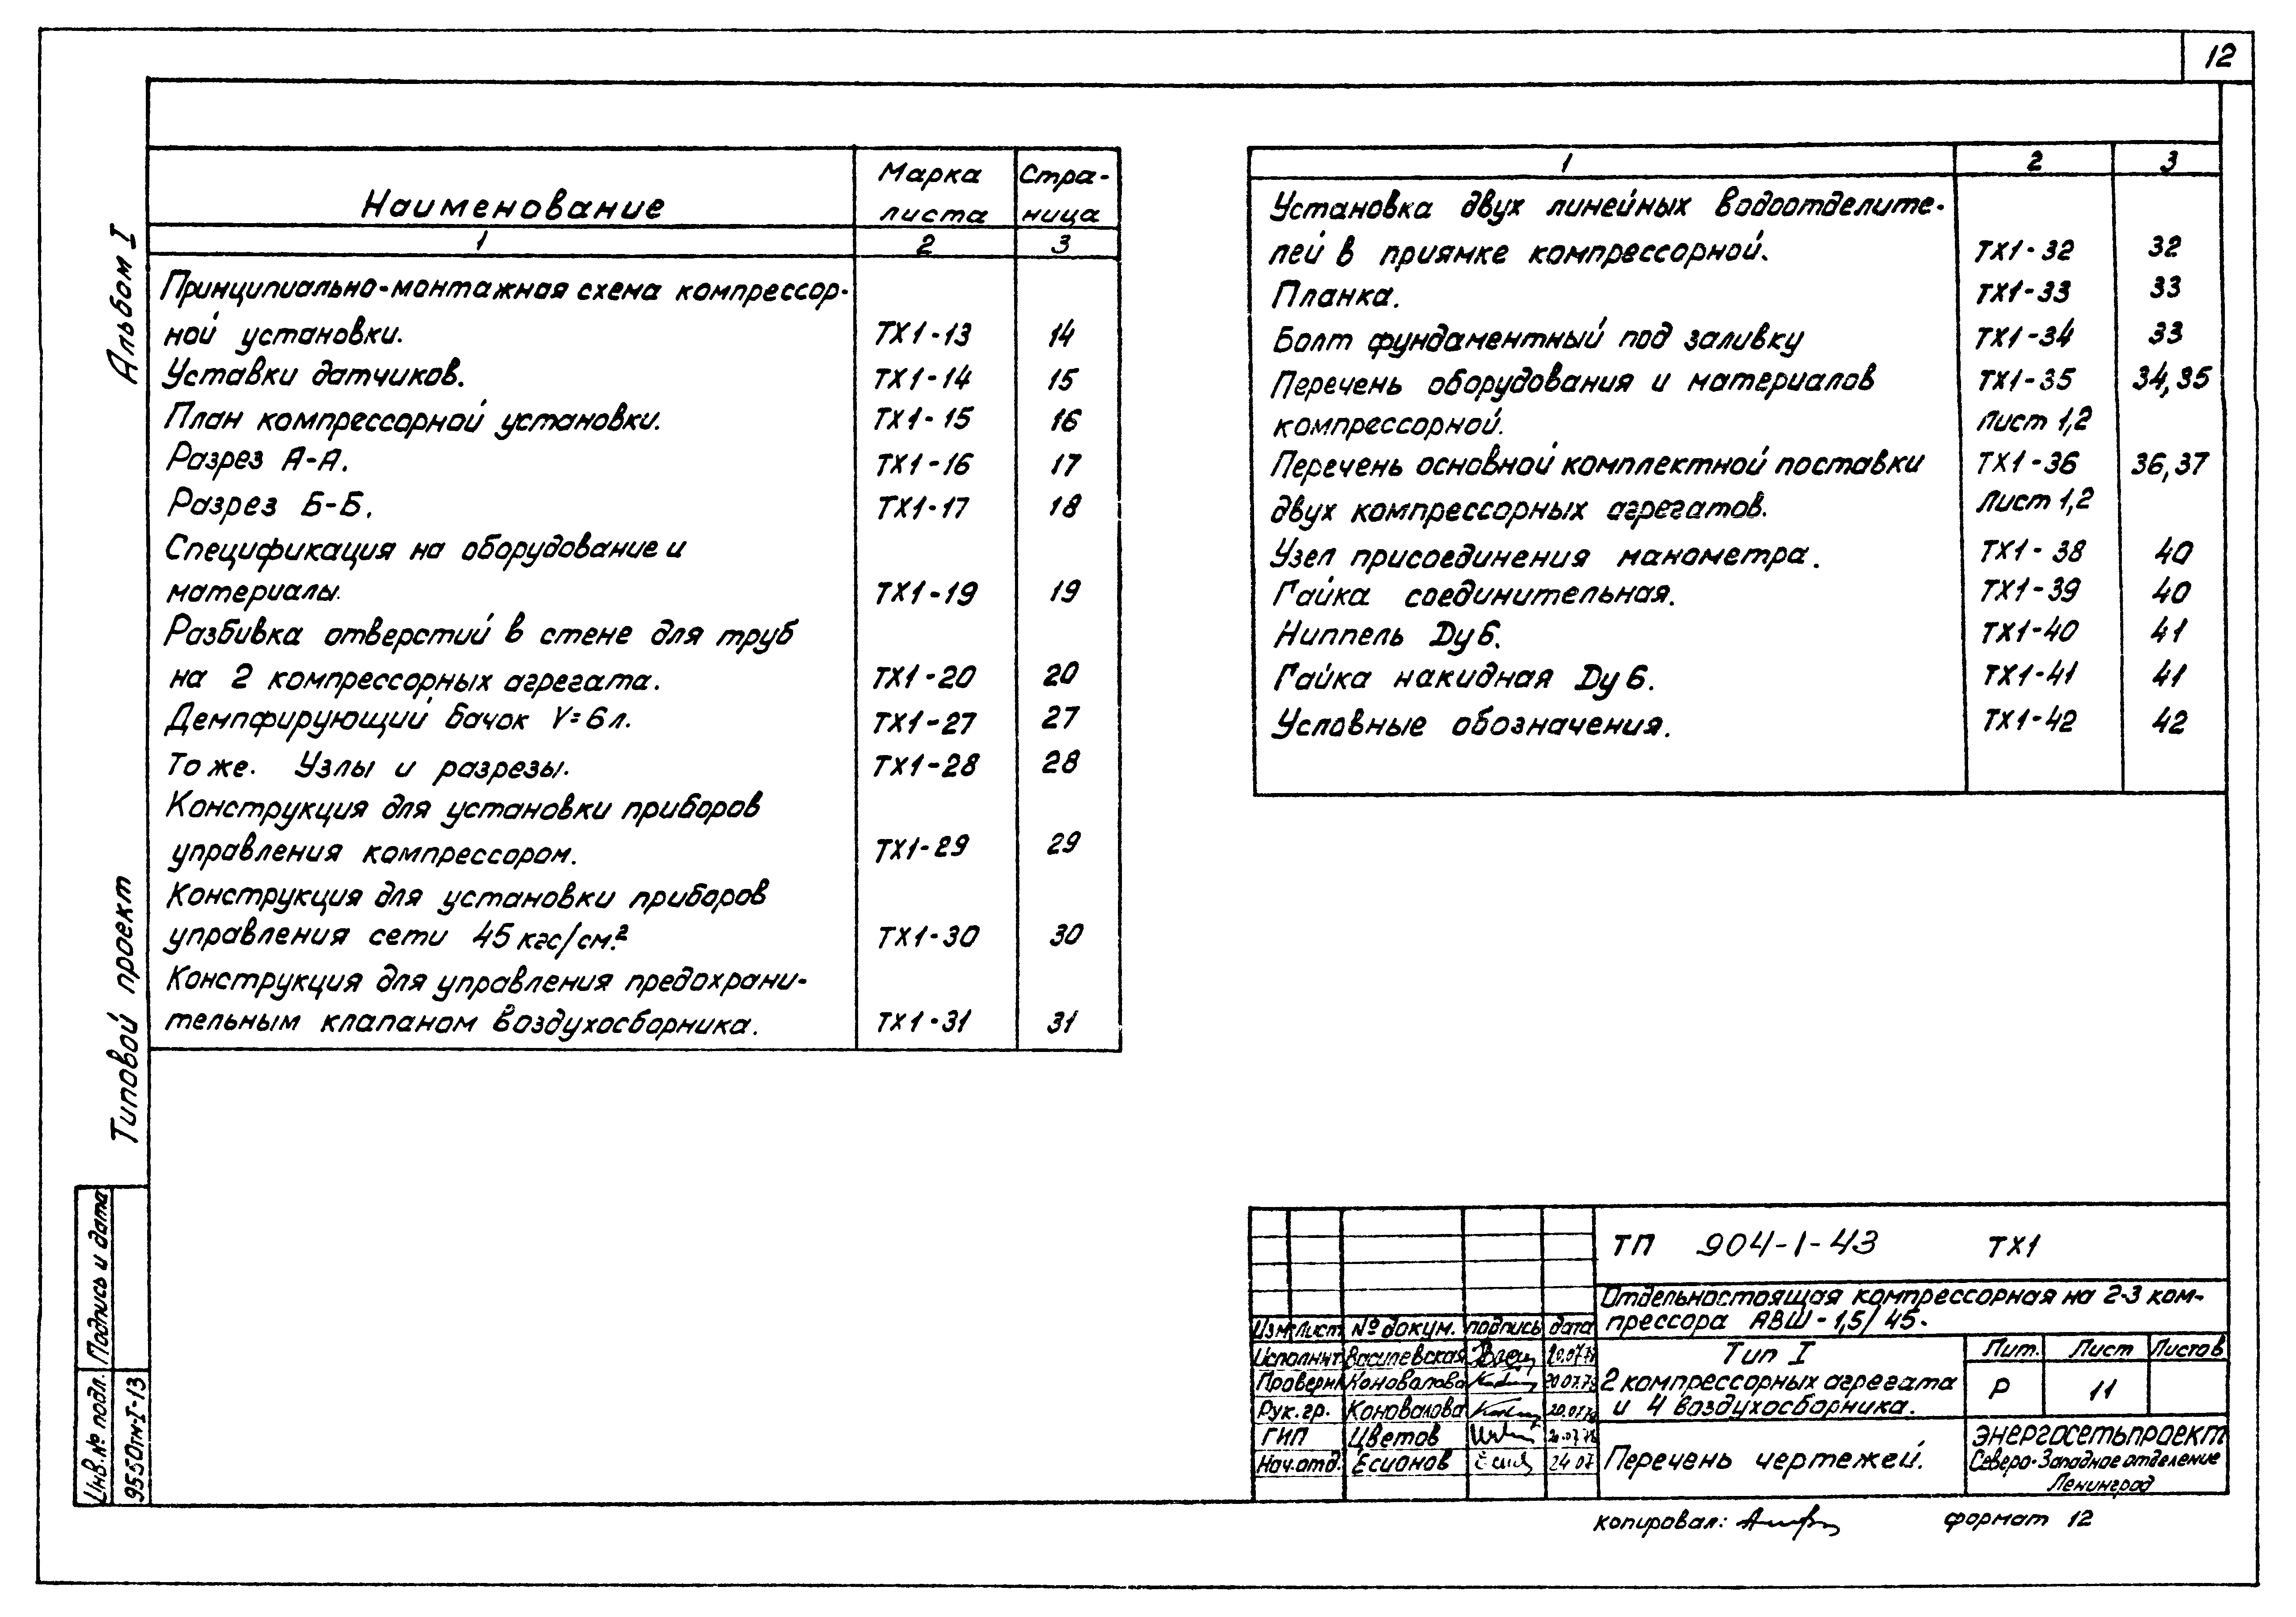 12
Альбом I
Типовой проект
Наименование Марка листа Стра-ница
1 2 3
Принципиально-монтажная схема компрессор-
ной установки. ТХ1-13 14
Уставки датчиков. ТХ1-14 15
План компрессорной установки. ТХ1-15 16
Разрез А-А. ТХ1-16 17
Разрез Б-Б. ТХ1-17 18
Спецификация на оборудование и
материалы. ТХ1-19 19
Разбивка отверстий в стене для труб
на 2 компрессорных агрегата. ТХ1-20 20
Демпфирующий бачок V=6л. ТХ1-27 27
То же. Узлы и разрезы. ТХ1-28 28
Конструкция для установки приборов
управления компрессором. ТХ1-29 29
Конструкция для установки приборов
управления сети 45 кгс/см.² ТХ1-30 30
Конструкция для управления предохрани-
тельным клапаном воздухосборника. ТХ1-31 31
1 2 3
Установка двух линейных водоотделите-
лей в приямке компрессорной. ТХ1-32 32
Планка. ТХ1-33 33
Болт фундаментный под заливку ТХ1-34 33
Перечень оборудования и материалов ТХ1-35 34,35
компрессорной. Лист 1,2
Перечень основной комплектной поставки ТХ1-36 36,37
двух компрессорных агрегатов. Лист 1,2
Узел присоединения манометра. ТХ1-38 40
Гайка соединительная. ТХ1-39 40
Ниппель Dу 6. ТХ1-40 41
Гайка накидная Dу 6. ТХ1-41 41
Условные обозначения. ТХ1-42 42
Подпись и дата
Инв.№ подл. 9550тм-I-13
ТП 904-1-43 ТХ1
Отдельностоящая компрессорная на 2-3 ком-
прессора АВШ-1,5/45.
Изм. Лист № докум. подпись дата
Исполнит. Василевская 20.07.78
Проверил Коновалова 20.07.78
Рук. гр. Коновалова 20.07.78
ГИП Цветов 20.07.78
Нач.отд. Есионов 24.07
Тип I
2 компрессорных агрегата
и 4 воздухосборника.
Лит. Лист Листов
Р 11
Перечень чертежей.
ЭНЕРГОСЕТЬПРОЕКТ
Северо-Западное отделение
Ленинград
копировал: формат 12